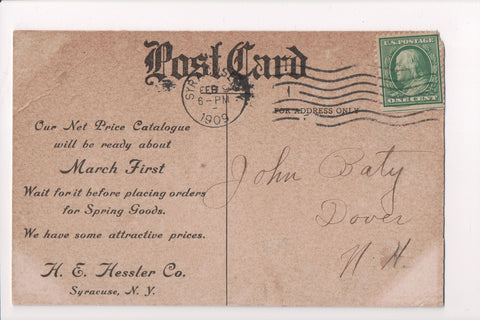 Post Card
FEB
6-PM
1909
U.S. POSTAGE
ONE CENT
FOR ADDRESS ONLY
Our Net Price Catalogue
will be ready about
March First
Wait for it before placing orders
for Spring Goods.
We have some attractive prices.
H. E. Hessler Co.
Syracuse, N. Y.
John Caty
Dover
N. H.